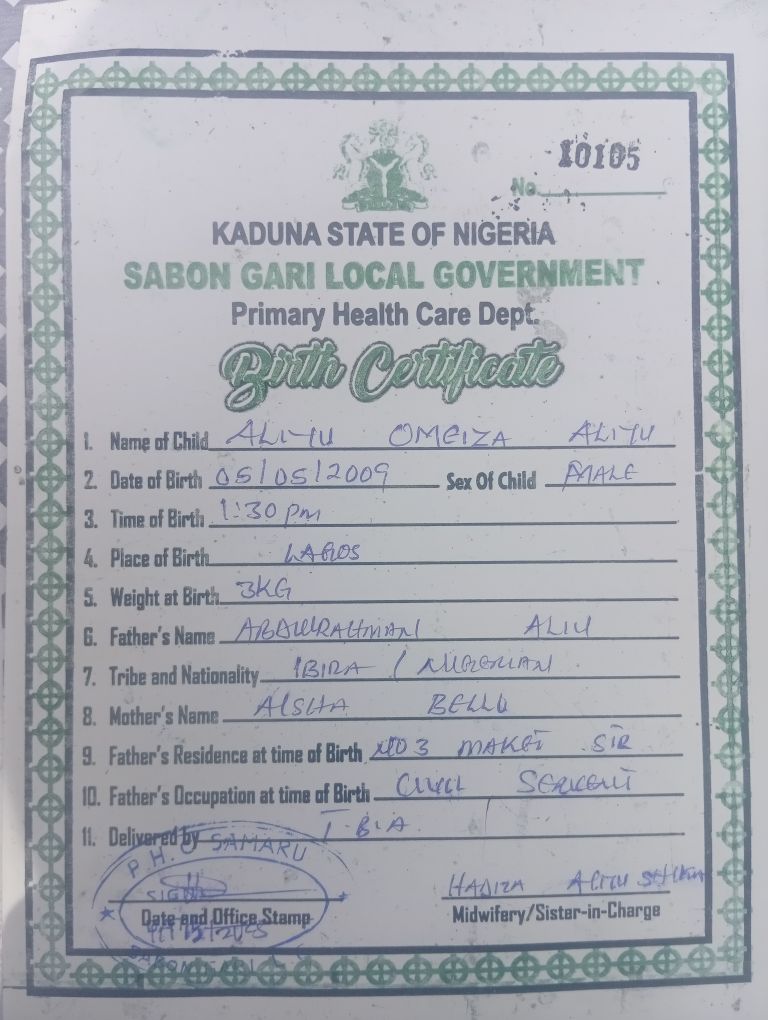 10105
No.
KADUNA STATE OF NIGERIA
SABON GARI LOCAL GOVERNMENT
Primary Health Care Dept.
Birth Certificate
1. Name of Child ALIYU OMEIZA ALIYU
2. Date of Birth 05/05/2009 Sex Of Child MALE
3. Time of Birth 1:30 pm
4. Place of Birth LAGOS
5. Weight at Birth 3KG
6. Father's Name ABDULRAHMAN ALIU
7. Tribe and Nationality IBIRA / NIGERIAN
8. Mother's Name AISHA BELLO
9. Father's Residence at time of Birth NO 3 MAKET STR
10. Father's Occupation at time of Birth CIVIL SERVENT
11. Delivered by T-B-A
P.H.C SAMARU
SIGN
HADIZA ALIYU
Date and Office Stamp
Midwifery/Sister-in-Charge